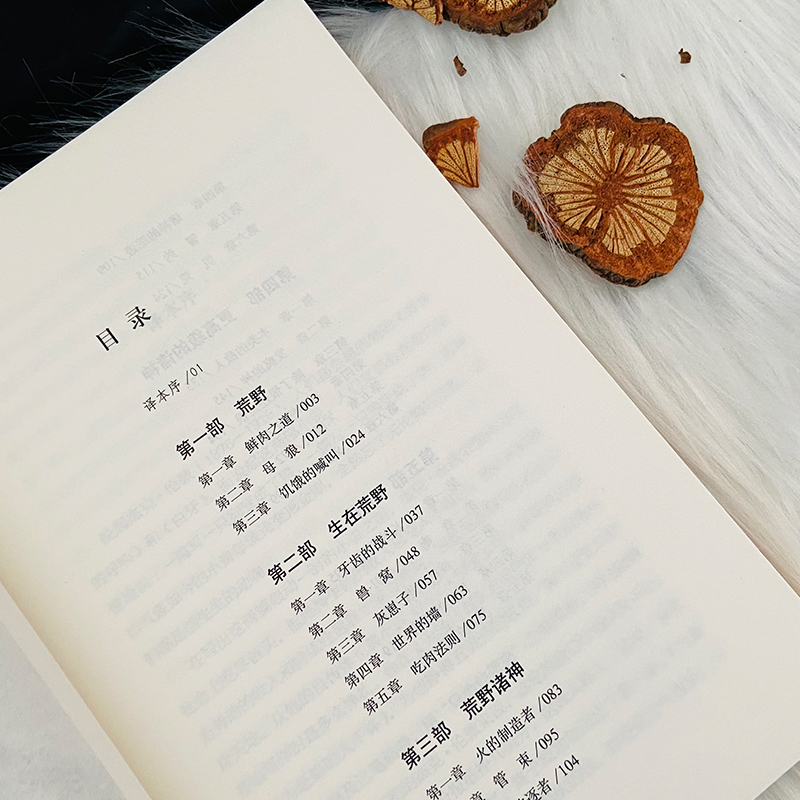 目 录
译本序 /01
第一部 荒野
第一章 鲜肉之道 /003
第二章 母 狼 /012
第三章 饥饿的喊叫 /024
第二部 生在荒野
第一章 牙齿的战斗 /037
第二章 兽 窝 /048
第三章 灰崽子 /057
第四章 世界的墙 /063
第五章 吃肉法则 /075
第三部 荒野诸神
第一章 火的制造者 /083
章 管 束 /095
逐者 /104